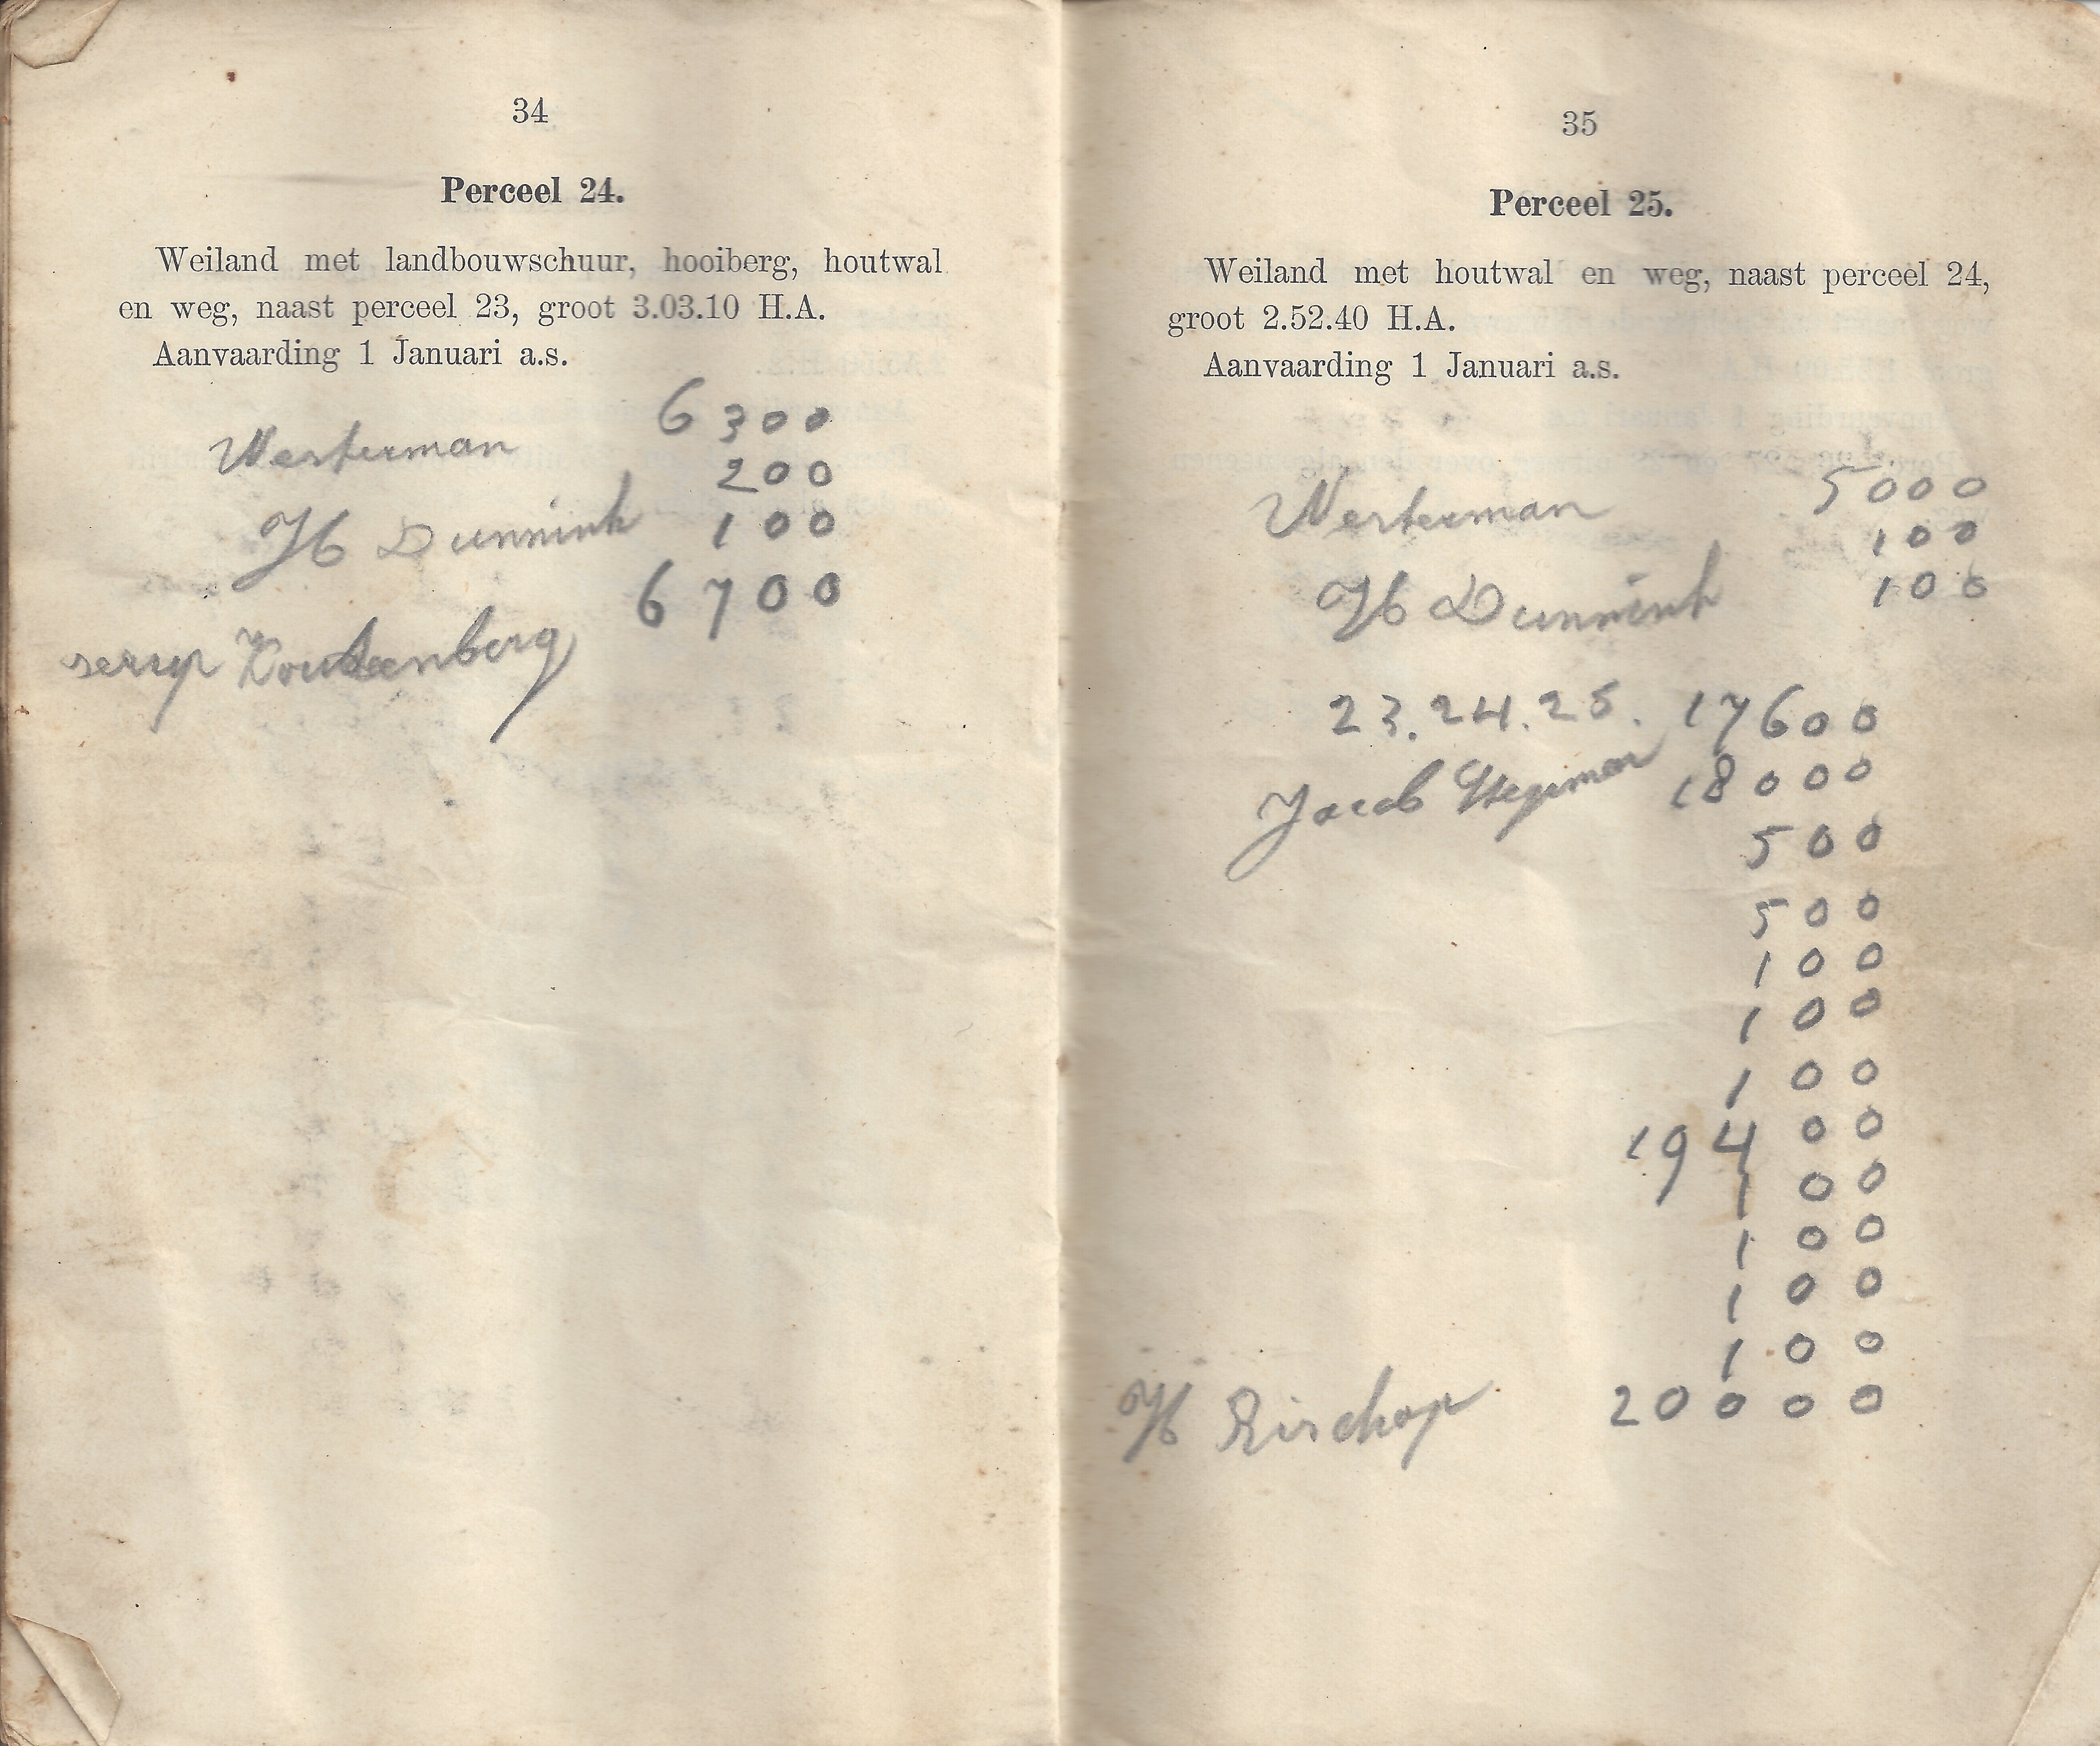 34
Perceel 24.
Weiland met landbouwschuur, hooiberg, houtwal
en weg, naast perceel 23, groot 3.03.10 H.A.
Aanvaarding 1 Januari a.s.
6300
Westerman
200
H Dunnink 100
6700
Koutsenberg
35
Perceel 25.
Weiland met houtwal en weg, naast perceel 24,
groot 2.52.40 H.A.
Aanvaarding 1 Januari a.s.
Westerman 5000
100
H Dunnink 100
23.24.25. 17600
Jacob Stegeman 18000
500
500
100
100
100
19400
100
100
100
100
H Bisschop 20000